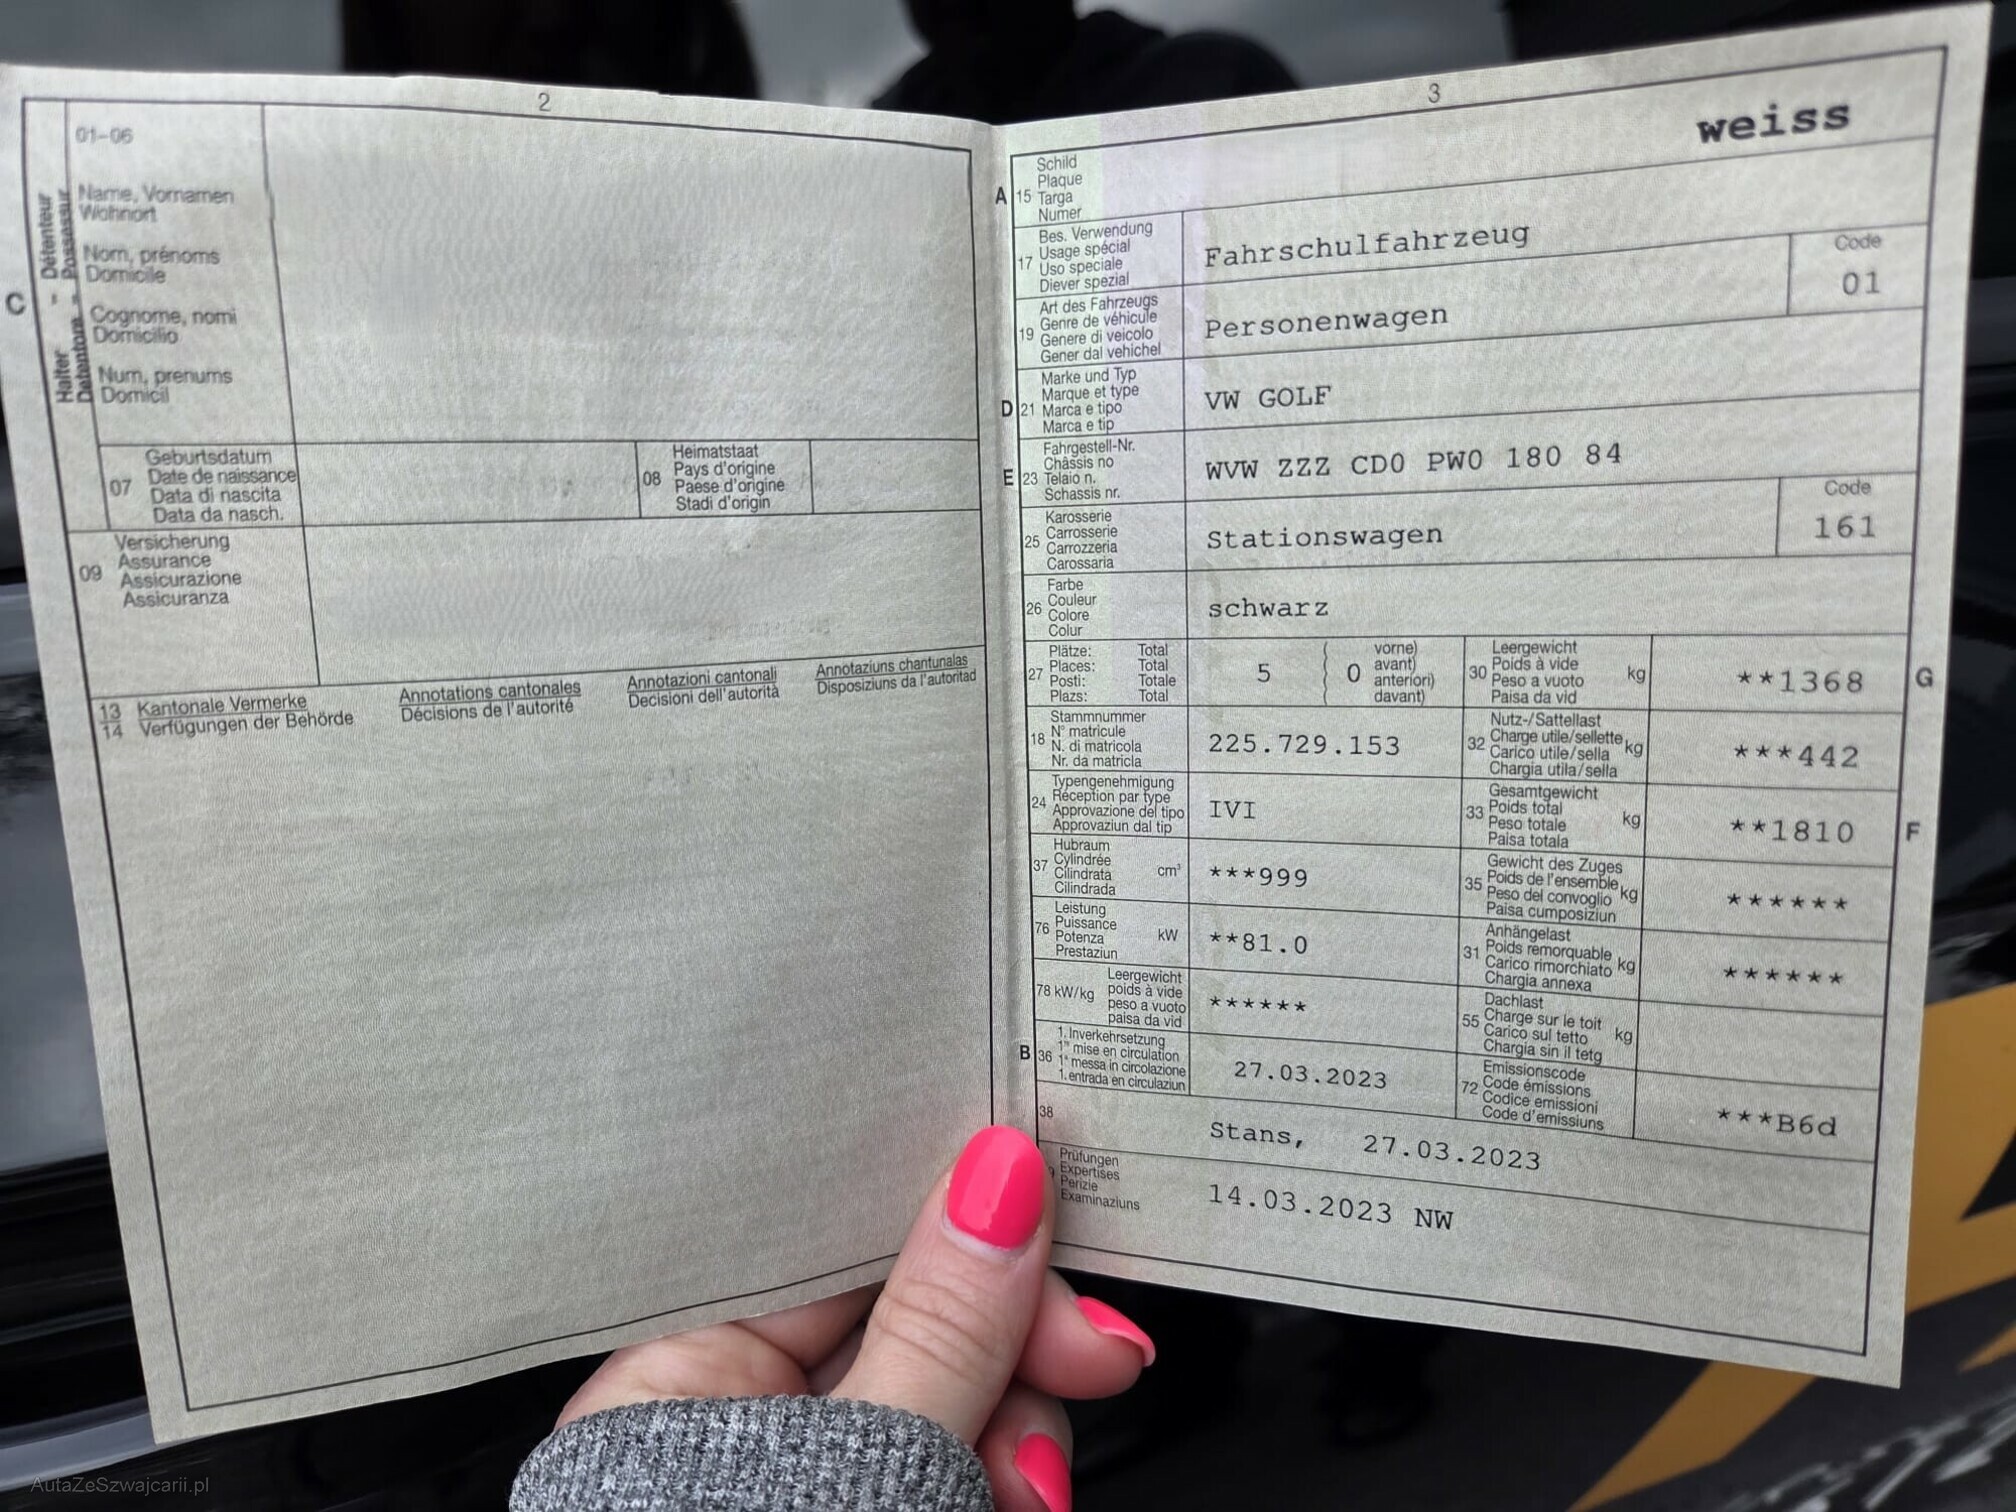 2
01-06
C
Halter - Détenteur
Detentore - Possessur
Name, Vornamen
Wohnort
Nom, prénoms
Domicile
Cognome, nomi
Domicilio
Num, prenums
Domicil
07
Geburtsdatum
Date de naissance
Data di nascita
Data da nasch.
08
Heimatstaat
Pays d'origine
Paese d'origine
Stadi d'origin
09
Versicherung
Assurance
Assicurazione
Assicuranza
13
14
Kantonale Vermerke
Verfügungen der Behörde
Annotations cantonales
Décisions de l'autorité
Annotazioni cantonali
Decisioni dell'autorità
Annotaziuns chantunalas
Disposiziuns da l'autoritad
3
weiss
A 15
Schild
Plaque
Targa
Numer
17
Bes. Verwendung
Usage spécial
Uso speciale
Diever spezial
Fahrschulfahrzeug
19
Art des Fahrzeugs
Genre de véhicule
Genere di veicolo
Gener dal vehichel
Personenwagen
Code
01
D 21
Marke und Typ
Marque et type
Marca e tipo
Marca e tip
VW GOLF
E 23
Fahrgestell-Nr.
Châssis no
Telaio n.
Schassis nr.
WVW ZZZ CD0 PW0 180 84
25
Karosserie
Carrosserie
Carrozzeria
Carossaria
Stationswagen
Code
161
26
Farbe
Couleur
Colore
Colur
schwarz
27
Plätze: Total
Places: Total
Posti: Totale
Plazs: Total
5 ( 0
vorne)
avant)
anteriori)
davant)
30
Leergewicht
Poids à vide
Peso a vuoto
Paisa da vid
kg
**1368
G
18
Stammnummer
N° matricule
N. di matricola
Nr. da matricla
225.729.153
32
Nutz-/Sattellast
Charge utile/sellette
Carico utile/sella
Chargia utila/sella
kg
***442
24
Typengenehmigung
Réception par type
Approvazione del tipo
Approvaziun dal tip
IVI
33
Gesamtgewicht
Poids total
Peso totale
Paisa totala
kg
**1810
F
37
Hubraum
Cylindrée
Cilindrata
Cilindrada
cm³
***999
35
Gewicht des Zuges
Poids de l'ensemble
Peso del convoglio
Paisa cumposiziun
kg
******
76
Leistung
Puissance
Potenza
Prestaziun
kW
**81.0
31
Anhängelast
Poids remorquable
Carico rimorchiato
Chargia annexa
kg
******
78 kW/kg
Leergewicht
poids à vide
peso a vuoto
paisa da vid
******
55
Dachlast
Charge sur le toit
Carico sul tetto
Chargia sin il tetg
kg
B 36
1. Inverkehrsetzung
1re mise en circulation
1a messa in circolazione
1. entrada en circulaziun
27.03.2023
72
Emissionscode
Code émissions
Codice emissioni
Code d'emissiuns
***B6d
38
Stans, 27.03.2023
Prüfungen
Expertises
Perizie
Examinaziuns
14.03.2023 NW
AutaZeSzwajcarii.pl